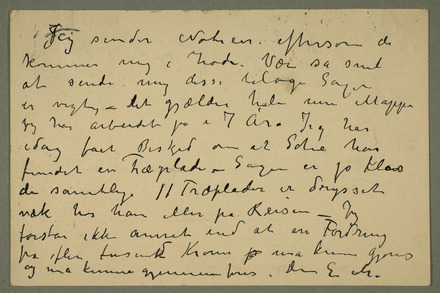 Jeg sender Notitser. eftersom de
kommer mig i Hode. Vær så snil
at sende mig disse tilbage Sagen
er vigtig – det gjælder hele min Mappe
jeg har arbeidet på i 7 År. Jeg har
idag fåt Besked om at har
fundet en Træplade – Sagen er jo klar
de samtlige 11 Træplader er
væk hos ham eller på Reisen – Jeg
forstår ikke annet end at en Fordring
på flere tusend Kroner må kunne gjøres
og må kunne gjennemføres. Din E M.